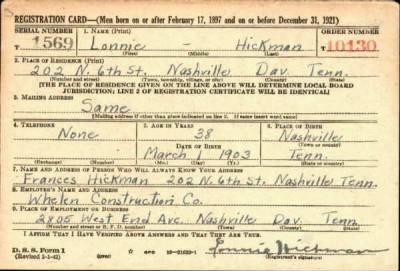 REGISTRATION CARD—(Men born on or after February 17, 1897 and on or before December 31, 1921)
SERIAL NUMBER 1. NAME (Print) ORDER NUMBER
T 1569 Lonnie - Hickman T 10130
(First) (Middle) (Last)
2. PLACE OF RESIDENCE (Print)
202 N. 6th St. Nashville Dav. Tenn.
(Number and street) (Town, township, village, or city) (County) (State)
[THE PLACE OF RESIDENCE GIVEN ON THE LINE ABOVE WILL DETERMINE LOCAL BOARD
JURISDICTION; LINE 2 OF REGISTRATION CERTIFICATE WILL BE IDENTICAL]
3. MAILING ADDRESS
Same
[Mailing address if other than place indicated on line 2. If same insert word same]
4. TELEPHONE 5. AGE IN YEARS 6. PLACE OF BIRTH
None 38 Nashville
DATE OF BIRTH (Town or county)
March 1 1903 Tenn.
(Exchange) (Number) (Mo.) (Day) (Yr.) (State or country)
7. NAME AND ADDRESS OF PERSON WHO WILL ALWAYS KNOW YOUR ADDRESS
Frances Hickman 202 N. 6th St. Nashville Tenn.
8. EMPLOYER'S NAME AND ADDRESS
Whelen Construction Co.
9. PLACE OF EMPLOYMENT OR BUSINESS
2805 West End Ave. Nashville Dav. Tenn.
(Number and street or R. F. D. number) (Town) (County) (State)
I AFFIRM THAT I HAVE VERIFIED ABOVE ANSWERS AND THAT THEY ARE TRUE.
D. S. S. Form 1 Lonnie Hickman
(Revised 1-1-42) (over) (Registrant's signature)